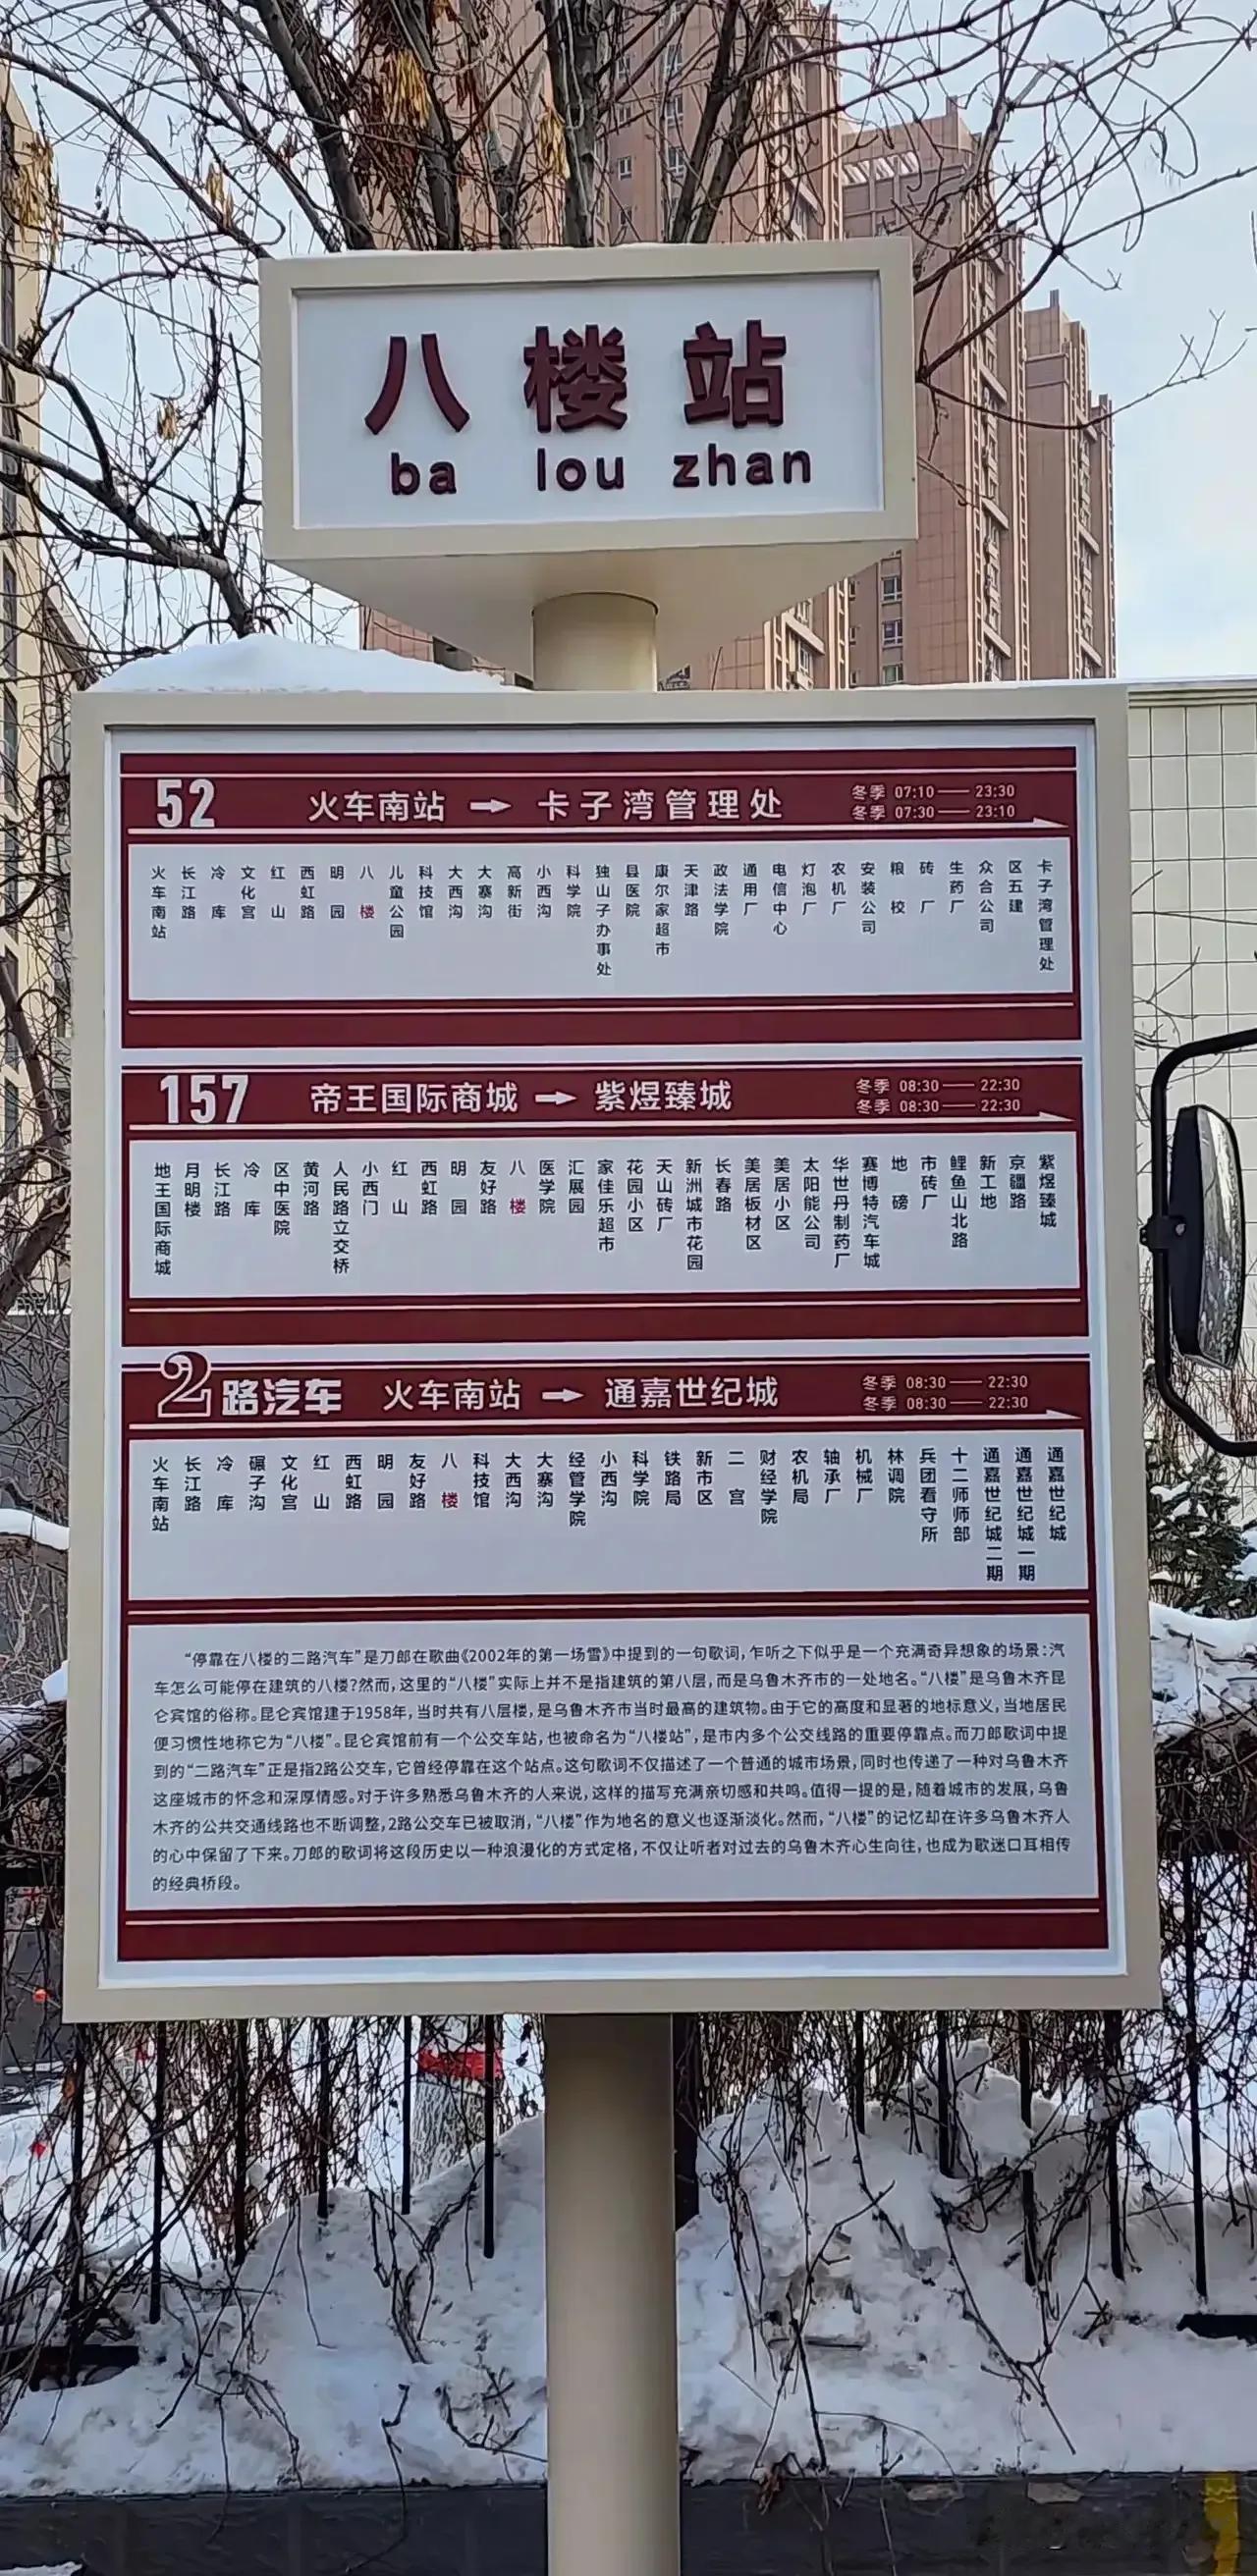 八楼站
ba lou zhan
52 火车南站 → 卡子湾管理处 冬季 07:10——23:30
冬季 07:30——23:10
火车南站 长江路 冷库 文化宫 红山 西虹路 明园 八楼 儿童公园 科技馆 大西沟 大寨沟 高新街 小西沟 科学院 独山子办事处 县医院 康尔家超市 天津路 政法学院 通用厂 电信中心 灯泡厂 农机厂 安装公司 粮校 砖厂 生药厂 众合公司 区五建 卡子湾管理处
157 帝王国际商城 → 紫煜臻城 冬季 08:30——22:30
冬季 08:30——22:30
地王国际商城 月明楼 长江路 冷库 区中医院 黄河路 人民路立交桥 小西门 红山 西虹路 明园 友好路 八楼 医学院 汇展园 家佳乐超市 花园小区 天山砖厂 新洲城市花园 长春路 美居板材区 美居小区 太阳能公司 华世丹制药厂 赛博特汽车城 地磅 市砖厂 鲤鱼山北路 新工地 京疆路 紫煜臻城
2路汽车 火车南站 → 通嘉世纪城 冬季 08:30——22:30
冬季 08:30——22:30
火车南站 长江路 冷库 碾子沟 文化宫 红山 西虹路 明园 友好路 八楼 科技馆 大西沟 大寨沟 经管学院 小西沟 科学院 铁路局 新市区 二宫 财经学院 农机局 轴承厂 机械厂 林调院 兵团看守所 十二师师部 通嘉世纪城二期 通嘉世纪城一期 通嘉世纪城
“停靠在八楼的二路汽车”是刀郎在歌曲《2002年的第一场雪》中提到的一句歌词,乍听之下似乎是一个充满奇异想象的场景:汽
车怎么可能停在建筑的八楼?然而,这里的“八楼”实际上并不是指建筑的第八层,而是乌鲁木齐市的一处地名。“八楼”是乌鲁木齐昆
仑宾馆的俗称。昆仑宾馆建于1958年,当时共有八层楼,是乌鲁木齐市当时最高的建筑物。由于它的高度和显著的地标意义,当地居民
便习惯性地称它为“八楼”。昆仑宾馆前有一个公交车站,也被命名为“八楼站”,是市内多个公交线路的重要停靠点。而刀郎歌词中提
到的“二路汽车”正是指2路公交车,它曾经停靠在这个站点。这句歌词不仅描述了一个普通的城市场景,同时也传递了一种对乌鲁木齐
这座城市的怀念和深厚情感。对于许多熟悉乌鲁木齐的人来说,这样的描写充满亲切感和共鸣。值得一提的是,随着城市的发展,乌鲁
木齐的公共交通线路也不断调整,2路公交车已被取消,“八楼”作为地名的意义也逐渐淡化。然而,“八楼”的记忆却在许多乌鲁木齐人
的心中保留了下来。刀郎的歌词将这段历史以一种浪漫化的方式定格,不仅让听者对过去的乌鲁木齐心生向往,也成为歌迷口耳相传
的经典桥段。